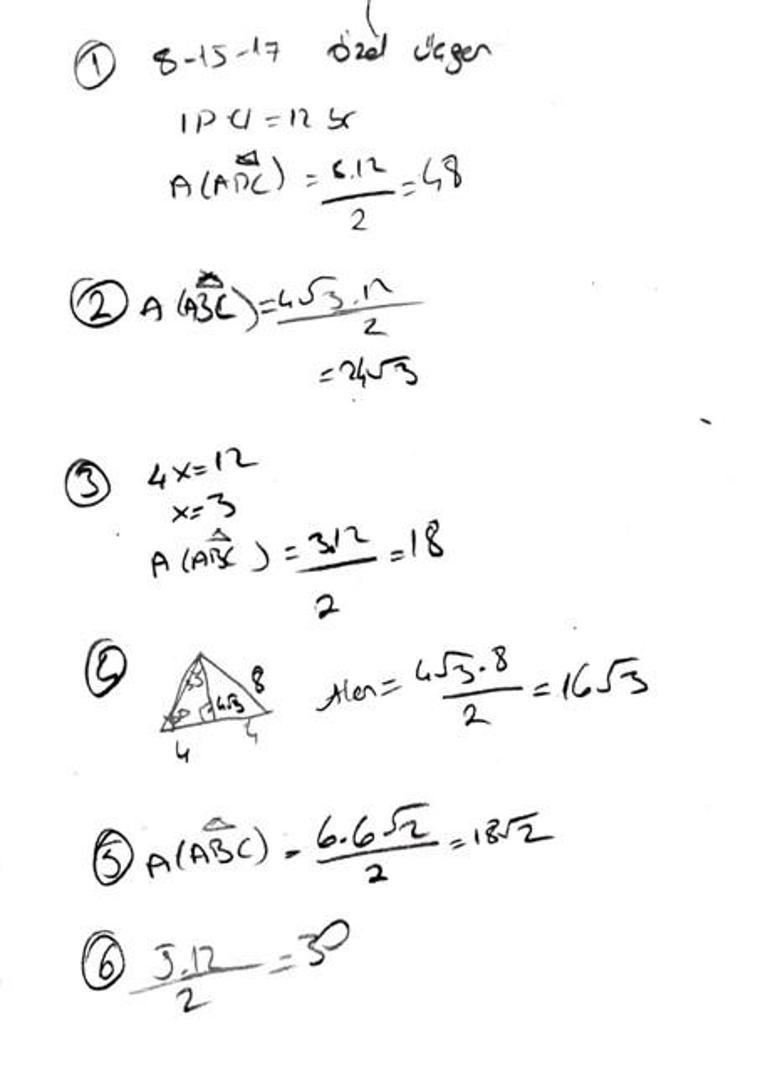 ① 8-15-17 özel üçgen
|DC| = 12 br
A(ADC) = 8.12/2 = 48
② A(ABC) = 4√3.12/2
= 24√3
③ 4x=12
x=3
A(ABC) = 3.12/2 = 18
④ 8 4√3 Alan = 4√3.8/2 = 16√3
4 4
⑤ A(ABC) = 6.6√2/2 = 18√2
⑥ 5.12/2 = 30